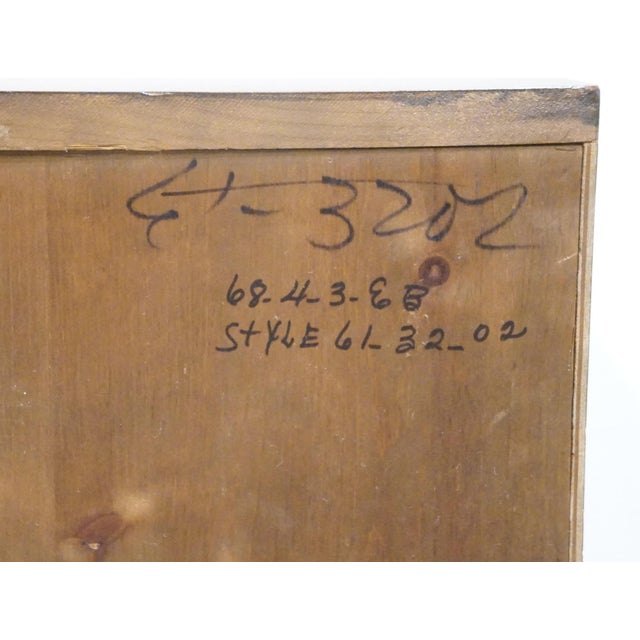 -3202
68-4-3-EB
STYLE 61-32-02